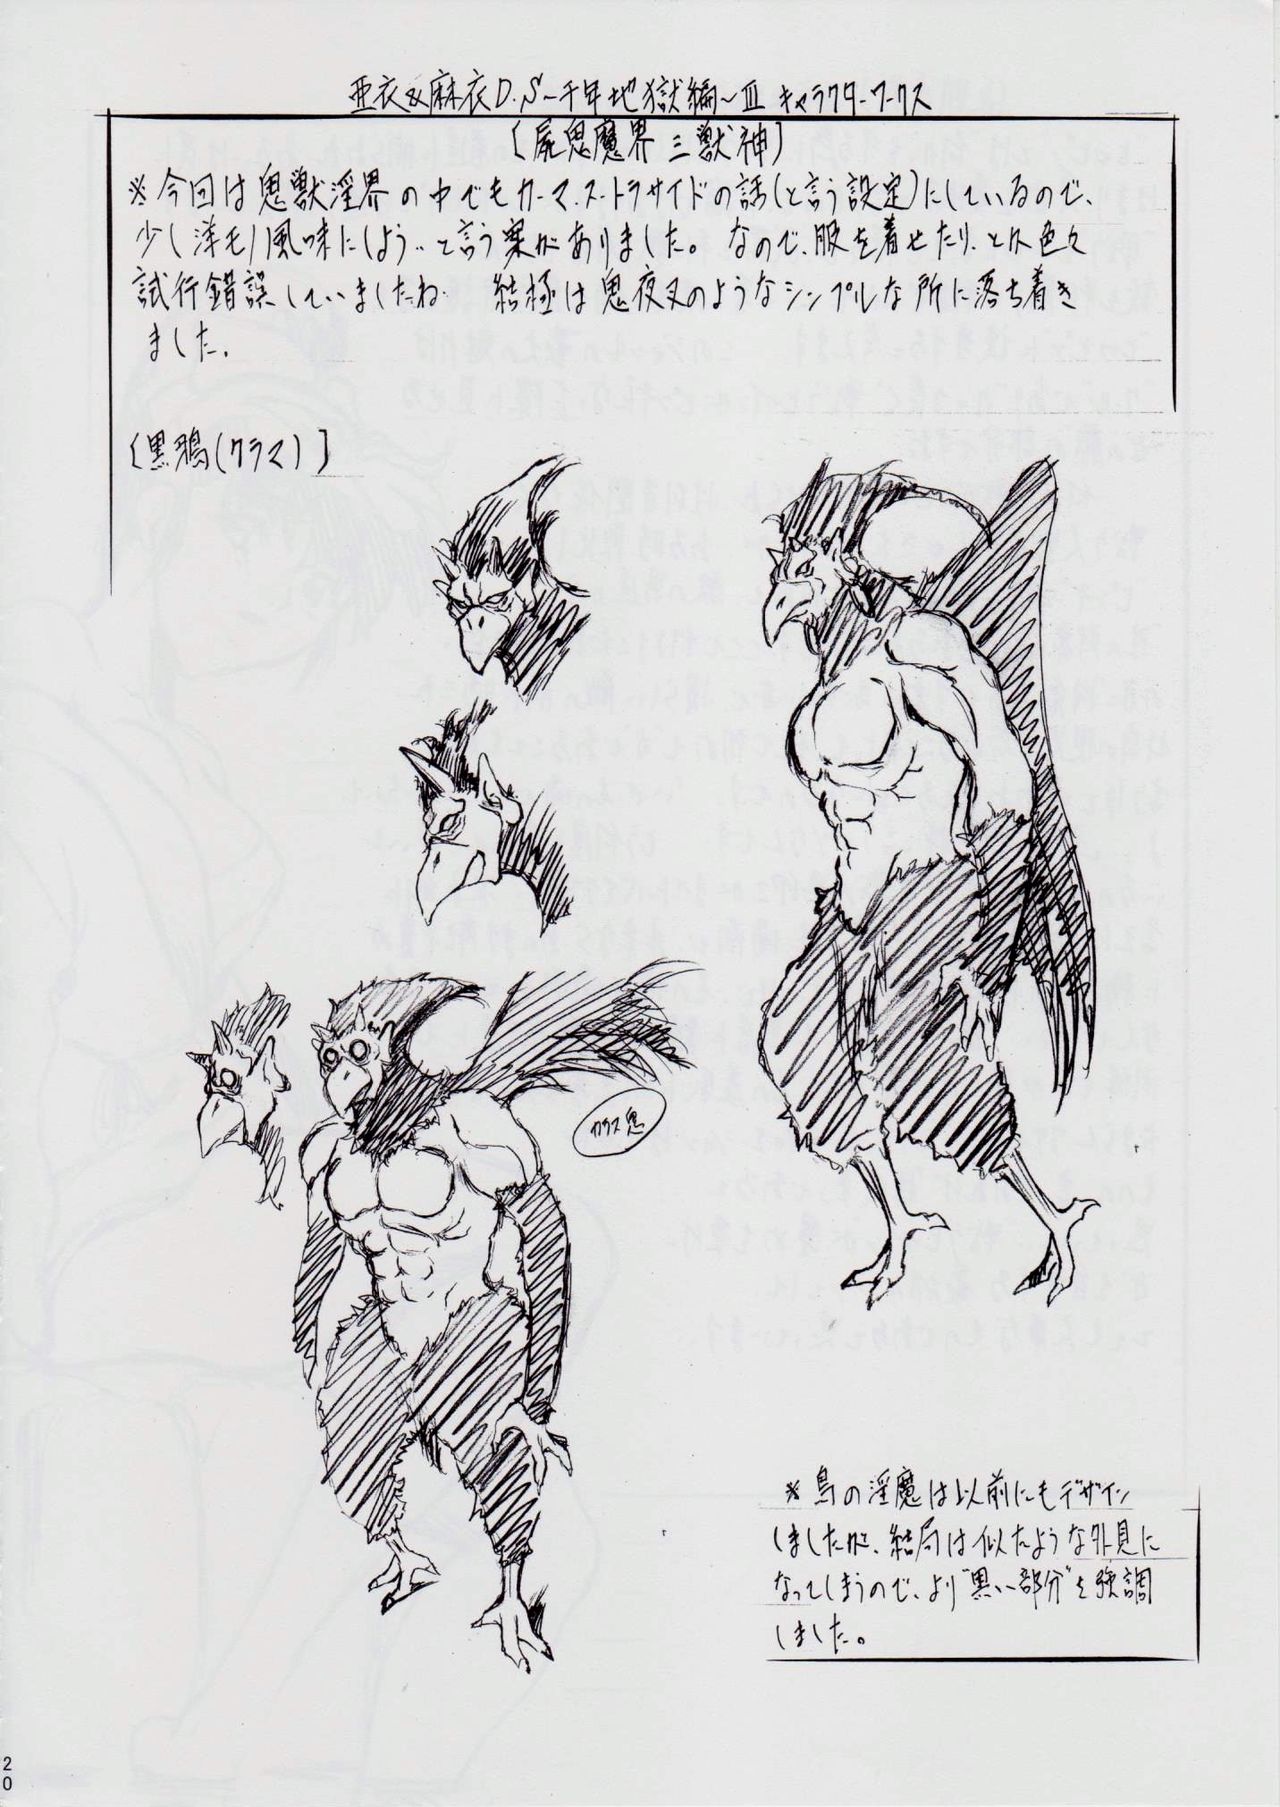 亜衣&麻衣D.S～千年地獄編～Ⅲ キャラクターワークス
〔屍鬼魔界三獣神〕
※今回は鬼獣淫界の中でもカーマ・スートラサイドの話(と言う設定)にしているので、
少し洋モノ風味にしよう‥と言う案がありました。なので、服を着せたり、とか色々
試行錯誤していましたね 結極は鬼夜叉のようなシンプルな所に落ち着き
ました.
〔黒鴉(クラマ)〕
カラス鬼
※鳥の淫魔は以前にもデザイン
しましたが、結局は似たような外見に
なってしまうので、より"黒い部分"を強調
しました。
20